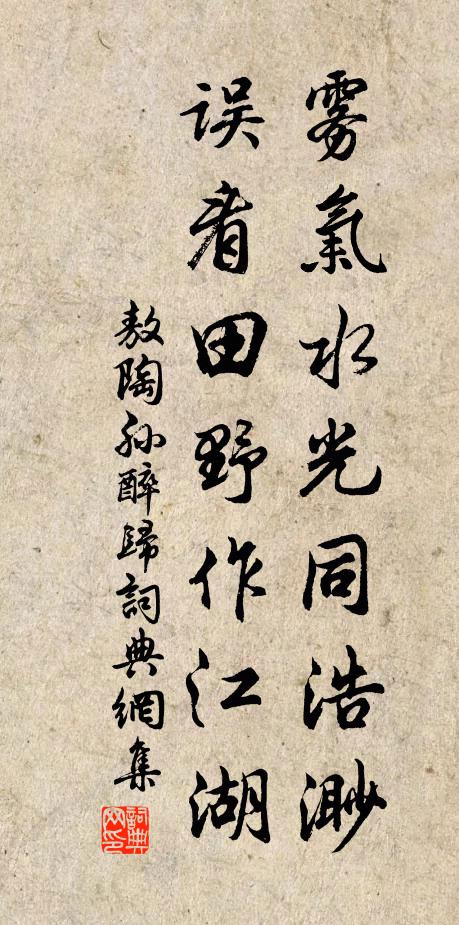 雾氣水光同浩渺
误看田野作江湖
敖陶孙醉歸詞典網集
詞典網印